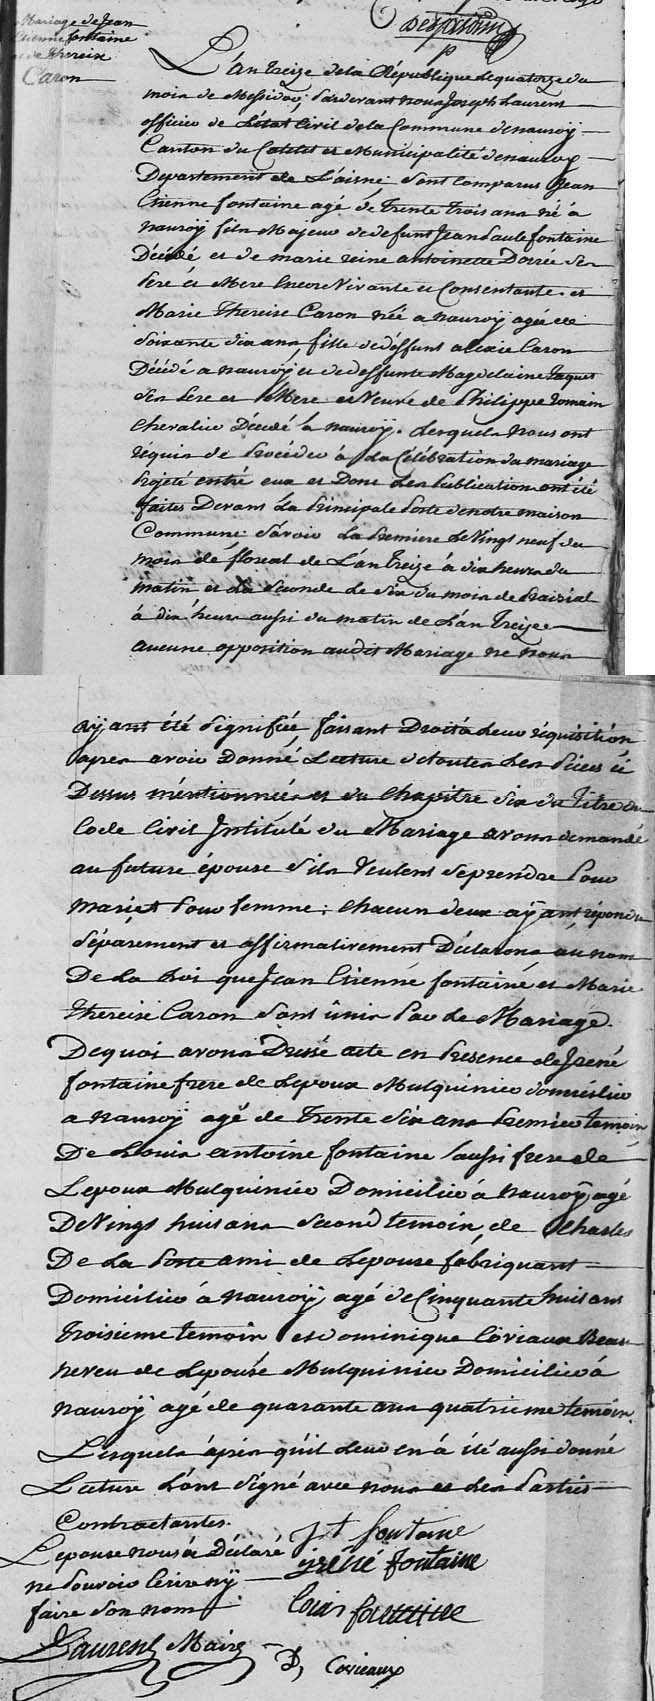 Desjardin
Mariage de Jean
Etienne fontaine
et de Thereise
Caron
L'an treize de la République le quatorze du
mois de Messidor, pardevant nous Joseph Laurent
officier de L'état Civil de la Commune de nauroÿ
Canton du Catelet et Municipalité de nauroÿ
Departement de L'aisne, sont comparus Jean
Etienne fontaine agé de trente trois ans né à
nauroÿ fils Majeur de defunt Jean Paule fontaine
Décédé et de marie reine antoinette Dorée ses
Pere et Mere encore Vivante et Consentante. et
Marie Thereise Caron née a nauroÿ agée de
Soixante dix ans, fille de deffunt alexie Caron
Décédé a nauroÿ et de deffunte Magdelaine Jaques
ses Pere et Mere et Veuve de Philippe romain
Chevalier Décédé à nauroÿ. Lesquels nous ont
réquis de Procéder à la Célébration du mariage
Projeté entré eux et Dont les Publication ont été
faites Devant la Principale Porte de notre maison
Commune Savoir la Premiere le Vingt neuf du
mois de floreal de L'an treize à dix heures du
matin et la Seconde le six du mois de Prairial
à dix heure aussi du matin de L'an Treize
aucune opposition audit Mariage ne nous
aÿant été Signifiée, faisant Droit à leur réquisition
apres avoir Donné Lecture de toutes les Pieces ci
Dessus méntionnées et du Chapitre Six du titre du
Code Civil Intitulé du Mariage avons demandé
au future épouse s'ils Veulent se prendre Pour
Mariet Pour femme; chacun deux aÿant répondu
séparement et affirmativement Déclarons au nom
De la Loi que Jean Etienne fontaine et Marie
Thereise Caron Sont unis Par le Mariage.
Dequoi avons Dressé acte en Presence de Jréné
fontaine frere de Lepoux Mulquinier domicilier
a nauroÿ agé de Trente Six ans Premier temoin
De Louis antoine fontaine aussi frere de
Lepoux Mulquinier Domicilier à nauroÿ agé
De Vingt huit ans Second temoin, de Charles
De La Porte ami de Lepouse fabriquant
Domicilier à nauroÿ agé de Cinquante huit ans
troisieme temoin et dominique Coriaux Beau
neveu de Lepouse Mulquinier Domicilier à
nauroÿ agé de quarante ans quatrieme temoin.
Lesquels apres qu'il leur en à été aussi donné
Lecture L'ont Signé avec nous et les Parties
Contractantes.
Lepouse nous à Déclaré
ne Pouvoir Ecrire nÿ
faire Son nom
J t fontaine
jréné fontaine
Louis fontaine
Laurent Maire
D, Corieaux